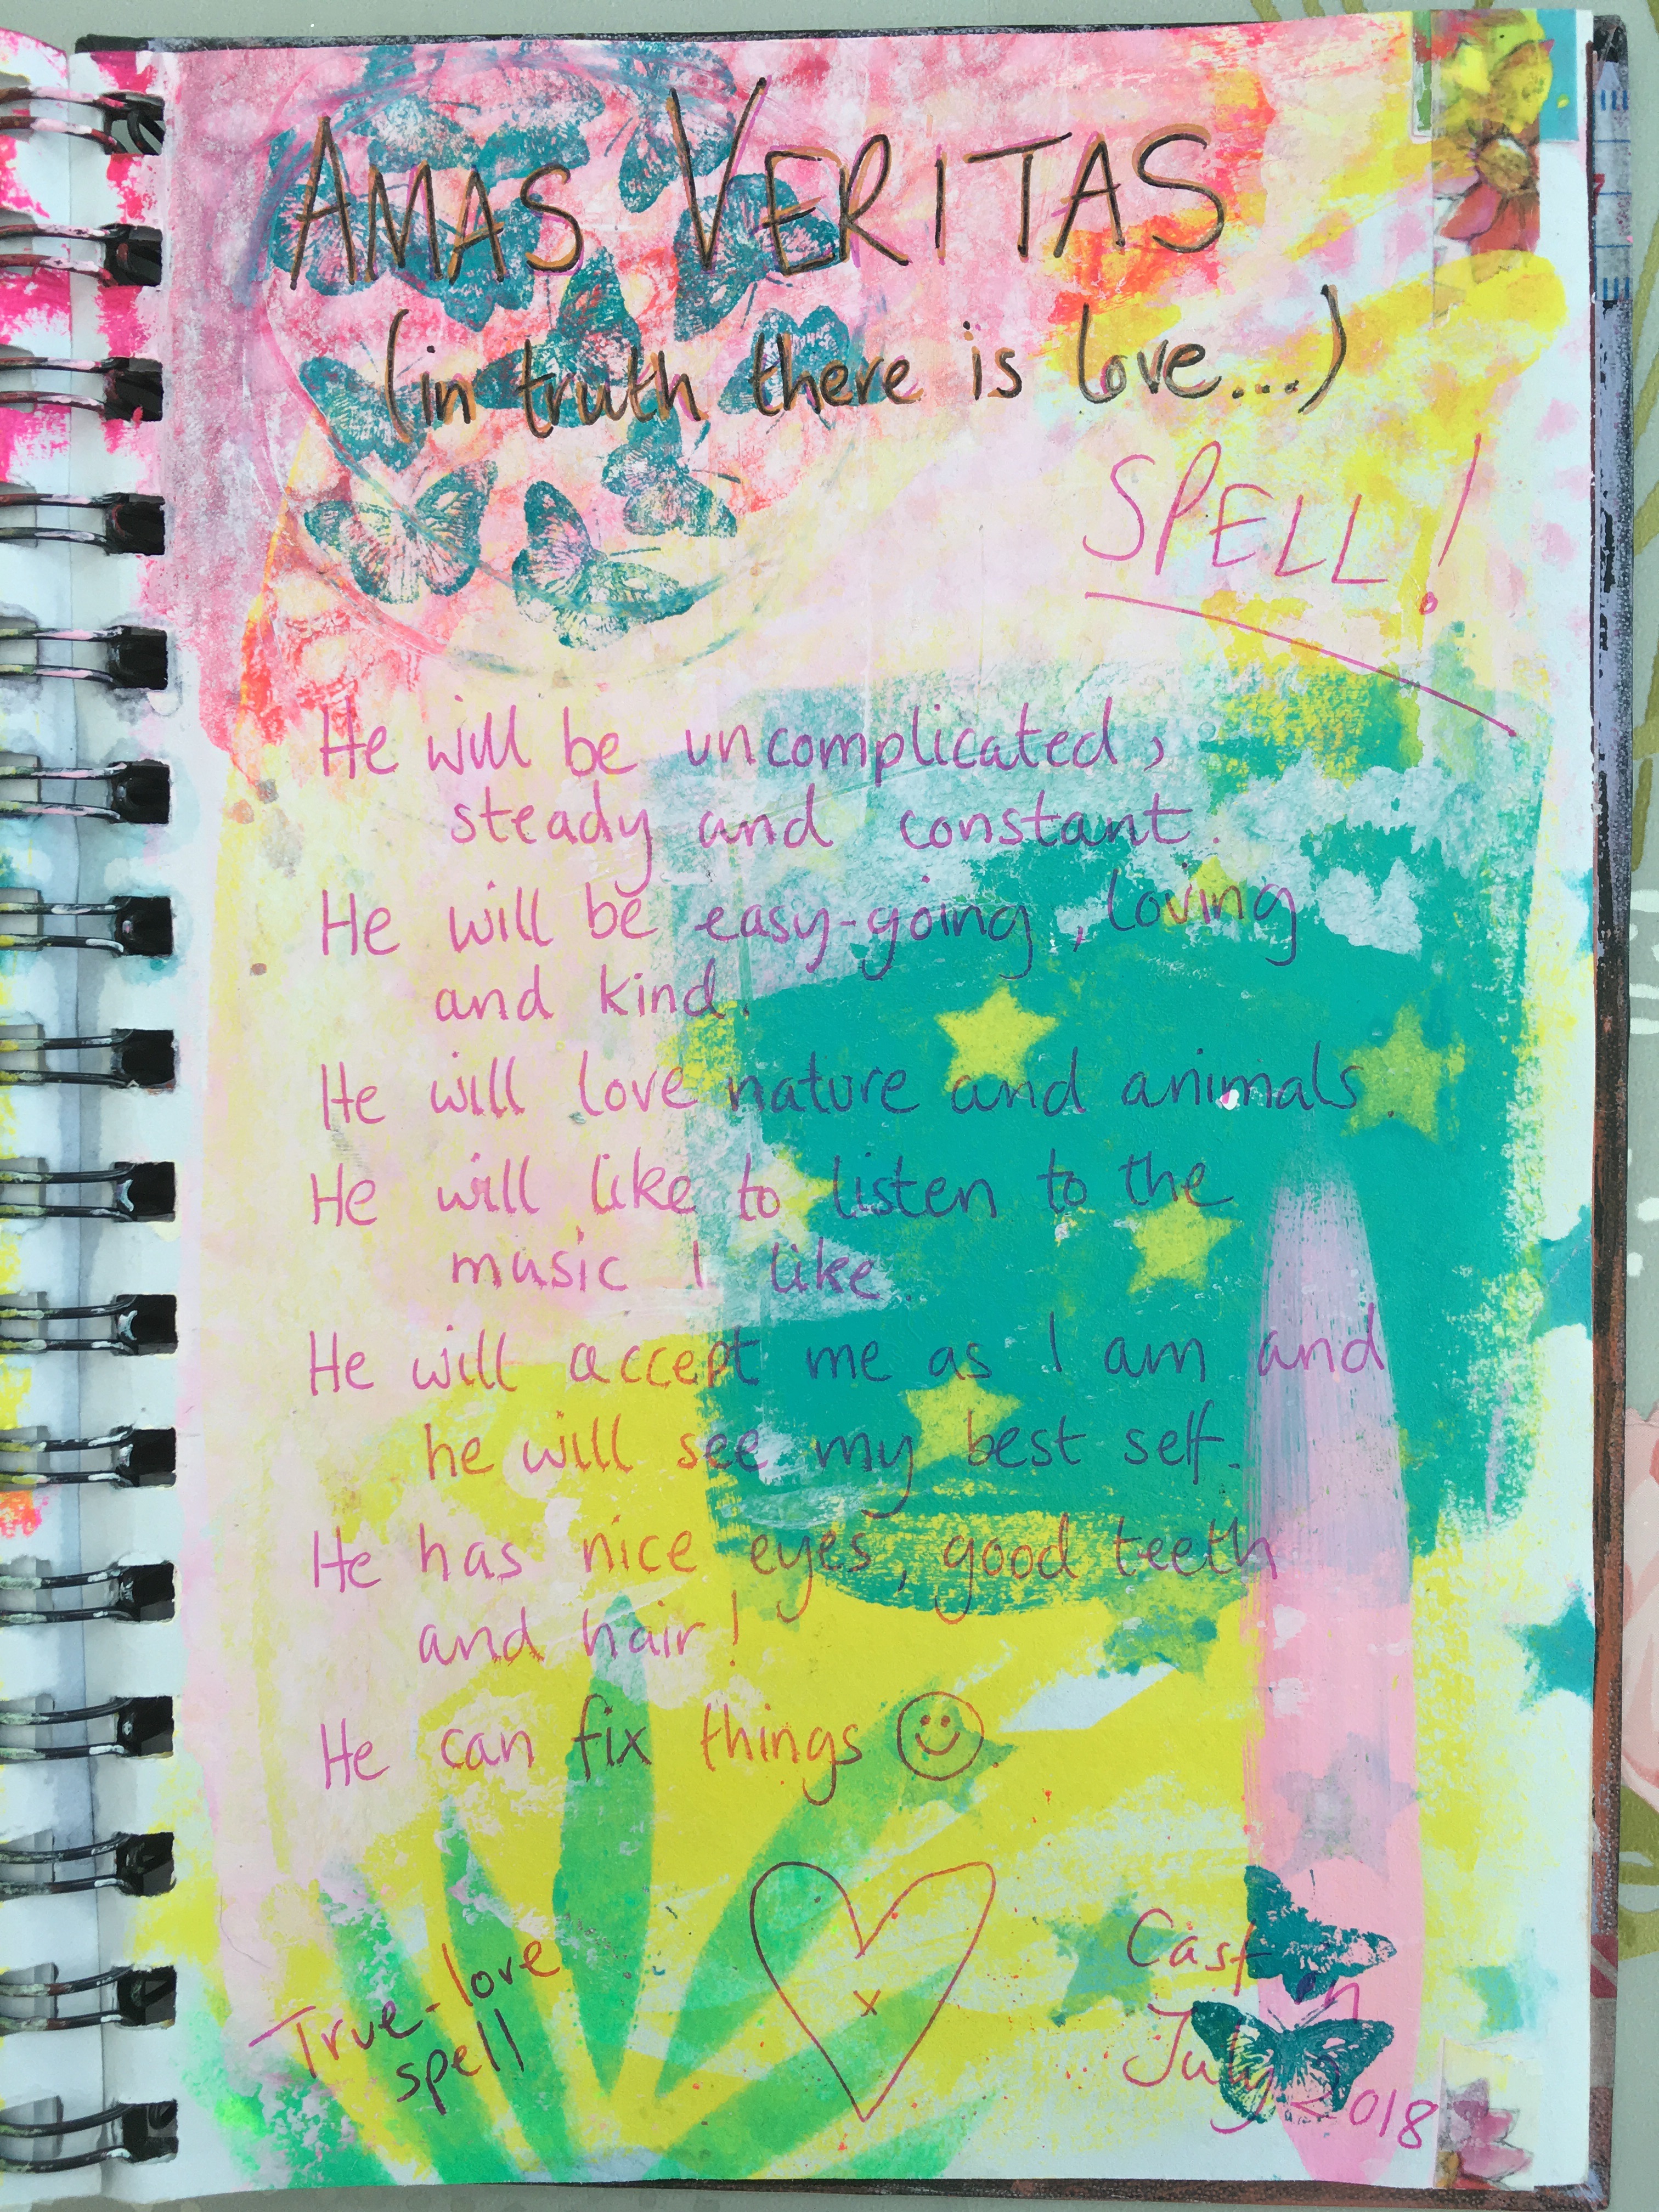 AMAS VERITAS
(in truth there is love...)
SPELL!
He will be uncomplicated,
steady and constant.
He will be easy-going, loving
and kind.
He will love nature and animals.
He will like to listen to the
music I like.
He will accept me as I am and
he will see my best self.
He has nice eyes, good teeth
and hair!
He can fix things ☺.
True-love
spell
x
Cast
in
July 2018